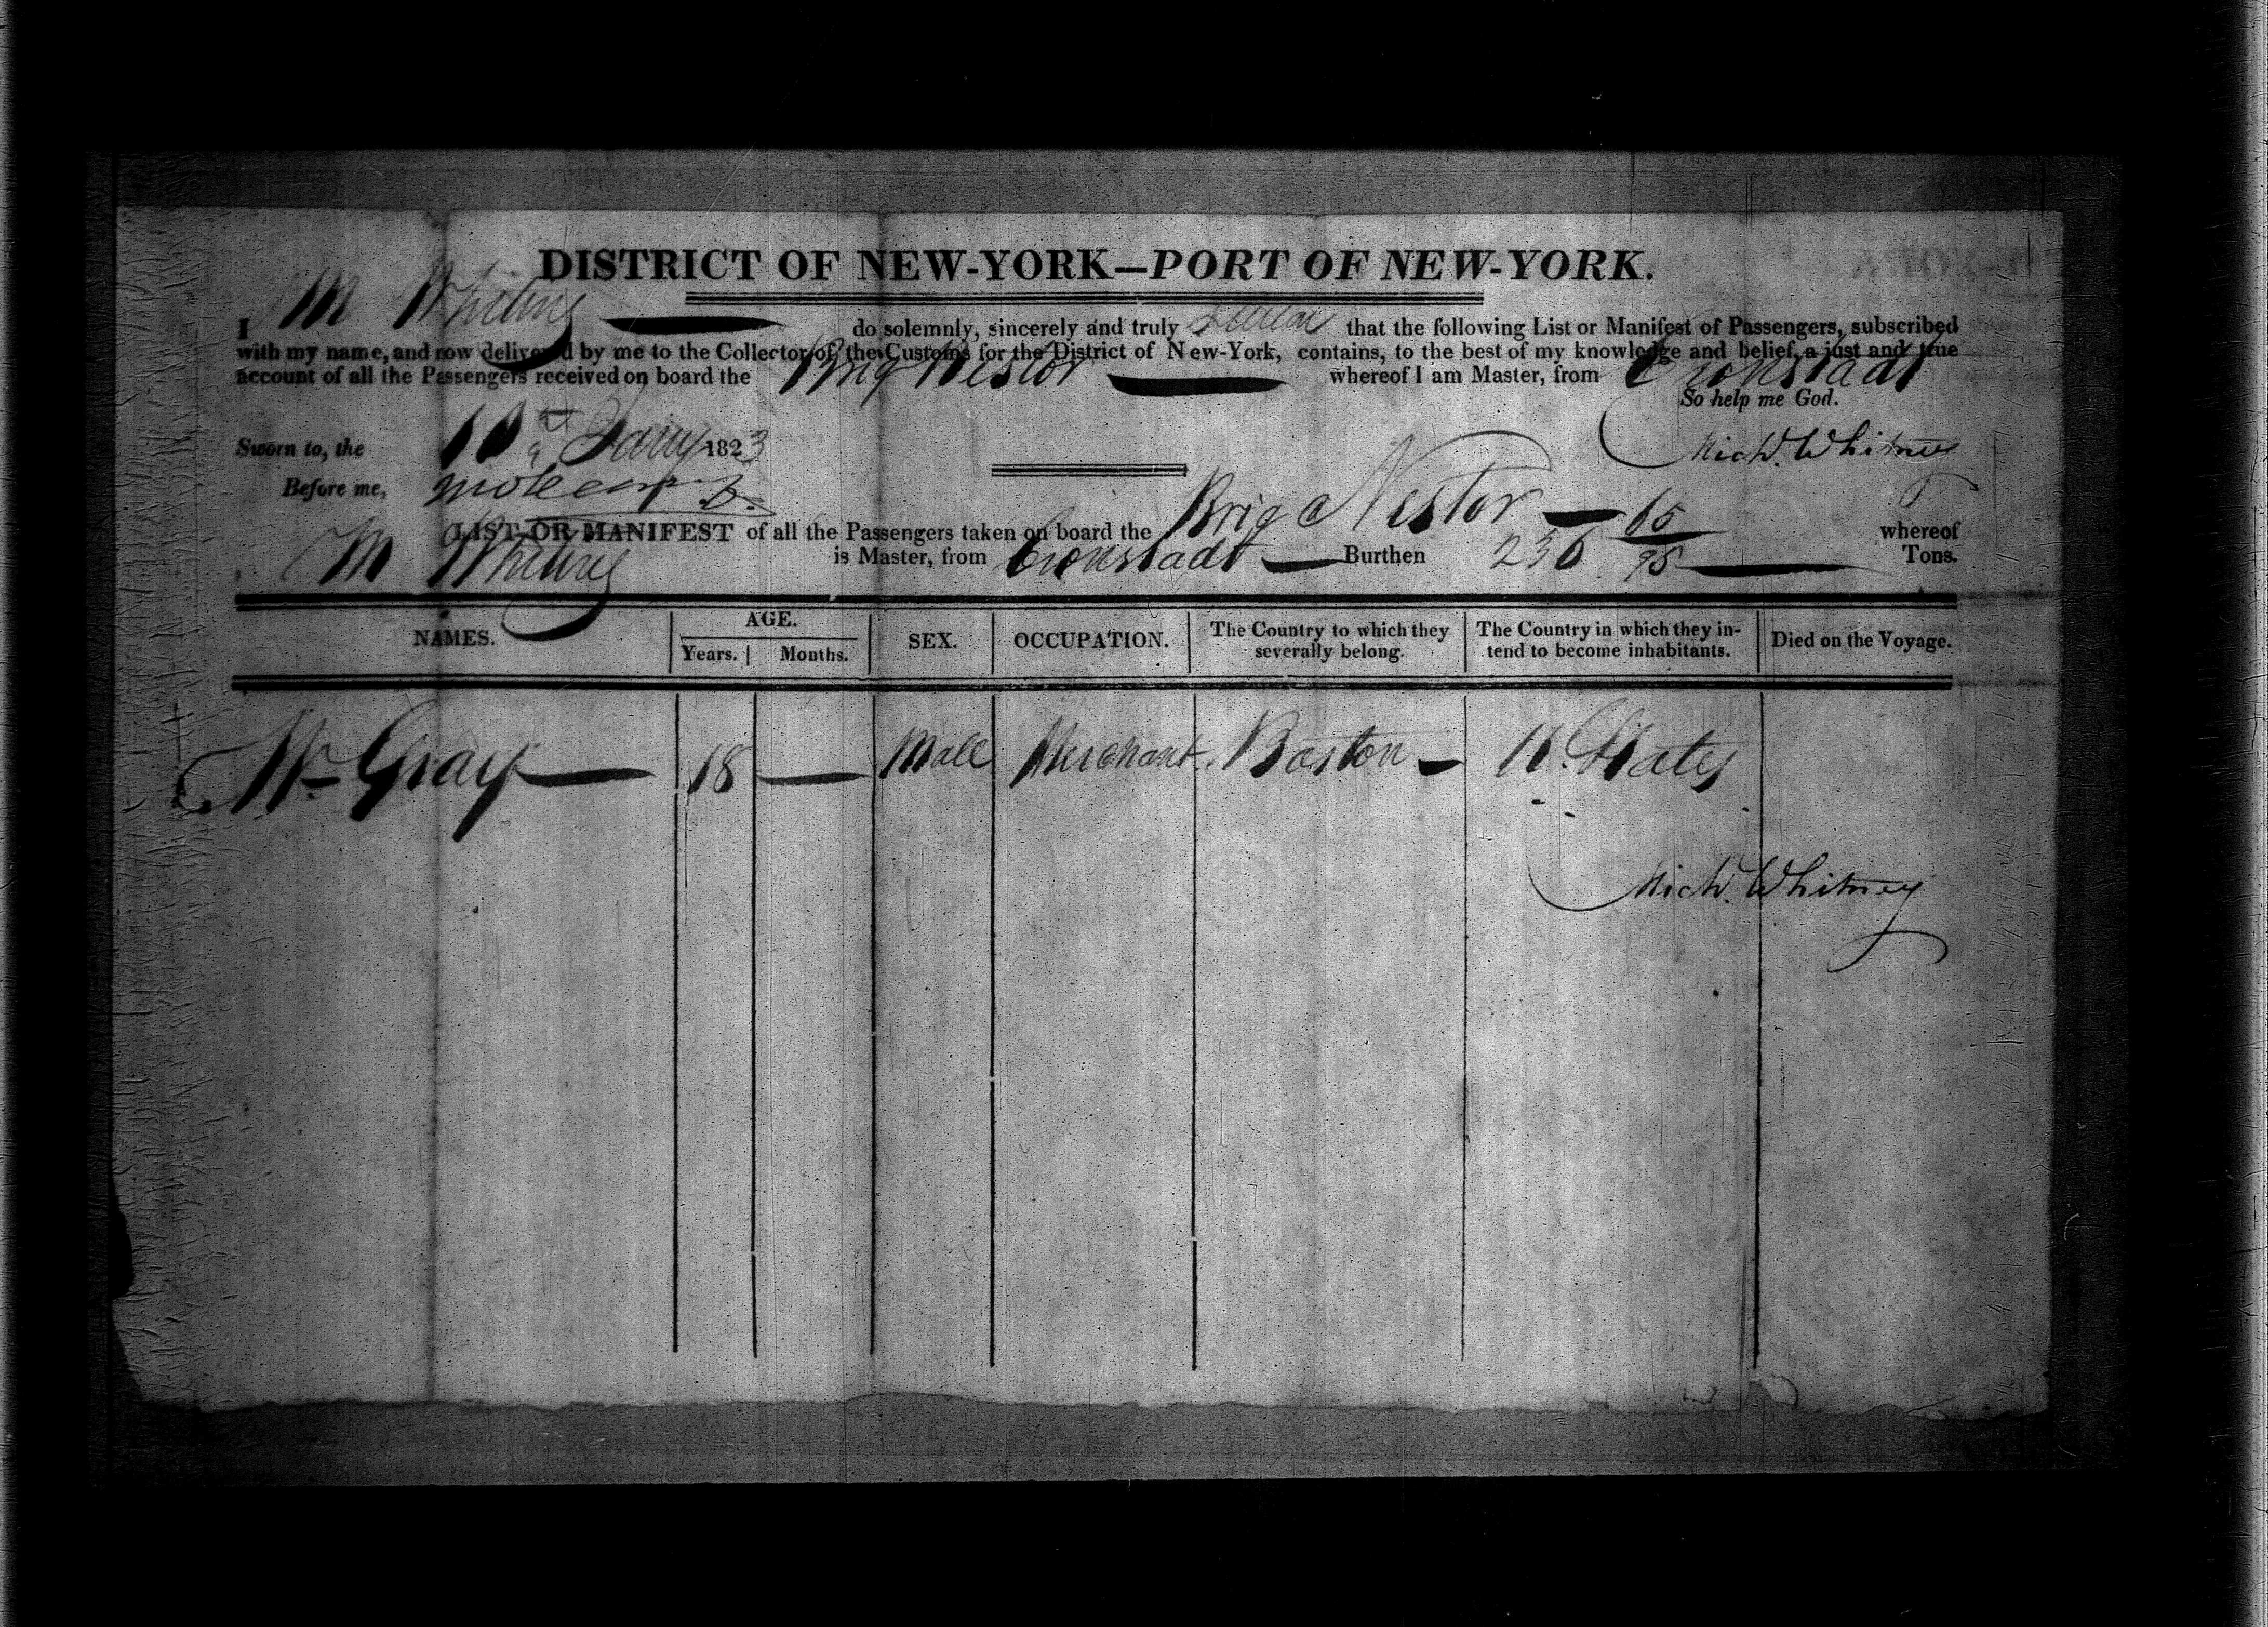 DISTRICT OF NEW-YORK—PORT OF NEW-YORK.
I M Whitney do solemnly, sincerely and truly Swear that the following List or Manifest of Passengers, subscribed
with my name, and now delivered by me to the Collector of the Customs for the District of New-York, contains, to the best of my knowledge and belief, a just and true
account of all the Passengers received on board the Brig Nestor whereof I am Master, from Cronstadt
So help me God.
Sworn to, the 10 Jany 1823
Mich. Whitney
Before me,
LIST OR MANIFEST of all the Passengers taken on board the Brig Nestor whereof
M Whitney is Master, from Cronstadt Burthen 236 65/95 Tons.
NAMES. AGE. Years. Months. SEX. OCCUPATION. The Country to which they severally belong. The Country in which they intend to become inhabitants. Died on the Voyage.
Mr Gray — 18 — Male Merchant Boston — U. States
Mich. Whitney